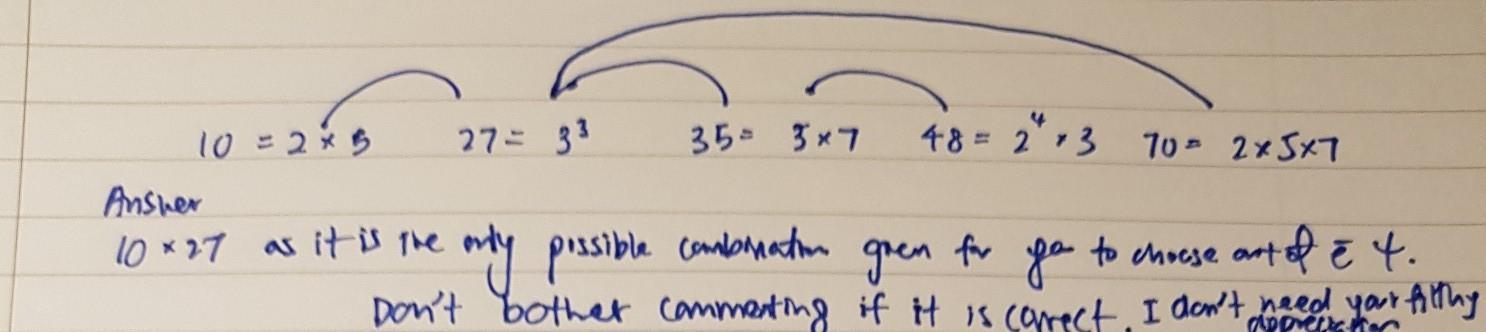 10 = 2 × 5 27 = 3³ 35 = 5 × 7 48 = 2⁴ × 3 70 = 2 × 5 × 7
Answer
10 × 27 as it is the only possible combination given for you to choose out of 4.
Don't bother commenting if it is correct. I don't need your filthy
appreciation